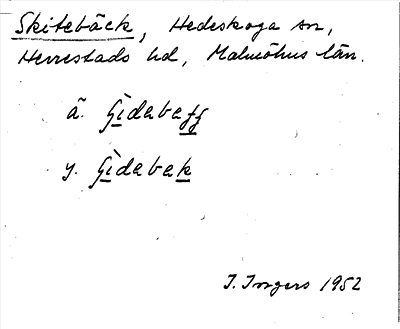 Skitebäck, Hedeskoga sn,
Herrestads hd, Malmöhus län.
ä. Gìdabagg
y. Gìdabak
I. Ingers 1952